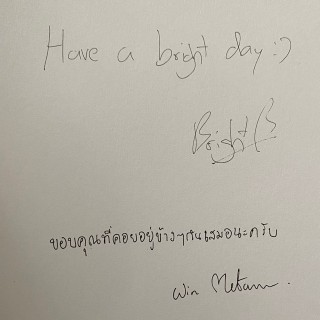 Have a bright day :)
Bright
ขอบคุณที่คอยอยู่ข้างๆกันเสมอนะครับ
Win Metawin